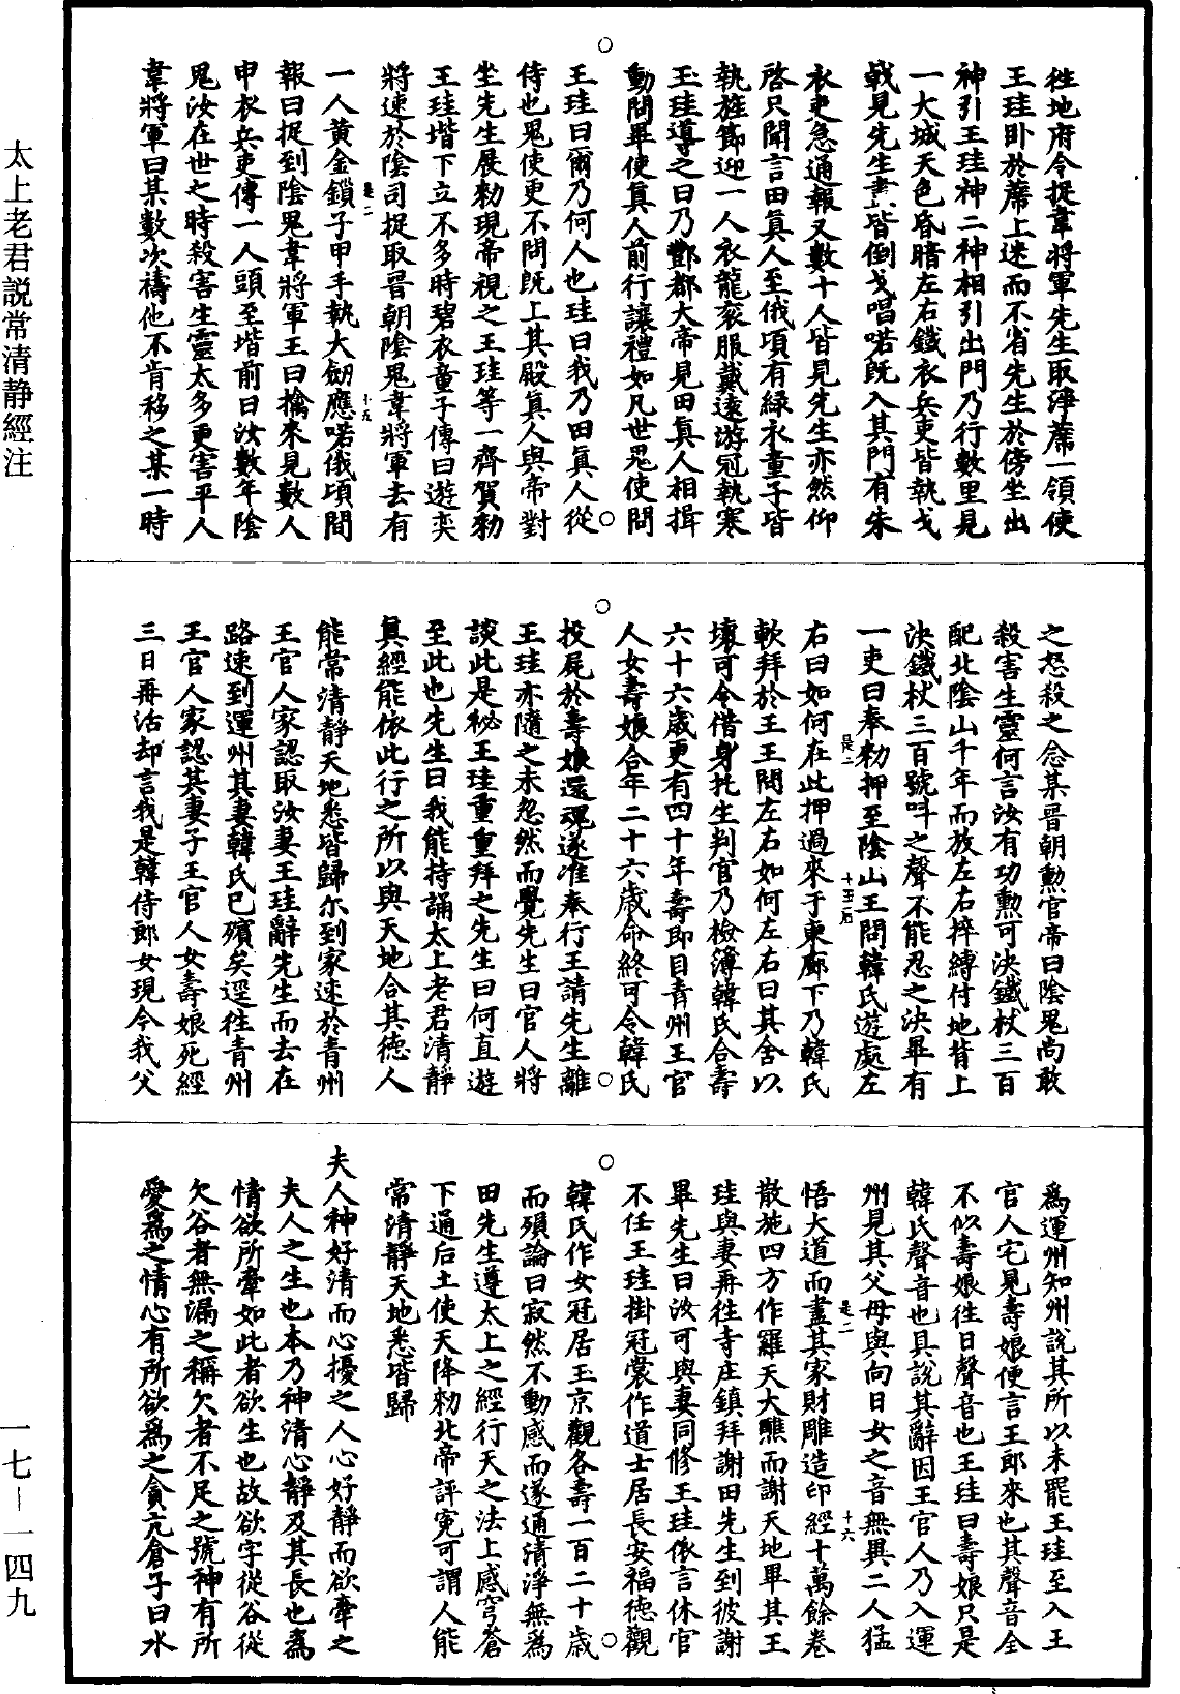 太上老君説常清静經注
徃地府令捉韋將軍先生取淨蓆一領使
王珪卧於蓆上迷而不省先生於傍坐出
神引王珪神二神相引出門乃行數里見
一大城天色昏暗左右鐵衣兵吏皆執戈
戟見先生畫皆倒戈唱喏旣入其門有朱
衣吏急通報又數十人皆見先生亦然仰
啓只聞言田眞人至俄頃有緑衣童子皆
執旌節迎一人衣龍衮服戴遠游冠執寒
玉珪導之曰乃酆都大帝見田眞人相揖
動問畢使眞人前行讓禮如凡世鬼使問
王珪曰爾乃何人也珪曰我乃田眞人從
侍也鬼使更不問旣上其殿眞人與帝對
坐先生展勑現帝視之王珪等一齊賀勑
王珪堦下立不多時碧衣童子傳曰遊奕
將速於陰司捉取晋朝陰鬼韋將軍去有
一人黄金鎖子甲手執大劒應喏俄頃間
報曰捉到陰鬼韋將軍王曰擒來見數人
甲衣兵吏傳一人頭至堦前曰汝數年陰
鬼汝在世之時殺害生靈太多更害平人
韋將軍曰某數次禱他不肯移之某一時
之怒殺之念某晋朝勲官帝曰陰鬼尚敢
殺害生靈何言汝有功勲可決鐵杖三百
配北陰山千年而放左右捽縛付地背上
決鐵杖三百號叫之聲不能忍之決畢有
一吏曰奉勑押至陰山王問韓氏遊處左
右曰如何在此押過來于東廊下乃韓氏
軟拜於王王問左右如何左右曰其舍以
壞可令借身托生判官乃檢簿韓氏合壽
六十六歳更有四十年壽即目青州王官
人女壽娘合年二十六歳命終可令韓氏
投屍於壽娘還魂遂准奉行王請先生離
王珪亦隨之未忽然而覺先生曰官人將
談此是秘王珪重重拜之先生曰何直遊
至此也先生曰我能持誦太上老君清靜
眞經能依此行之所以與天地合其德人
能常清靜天地悉皆歸尓到家速於青州
王官人家認取汝妻王珪辭先生而去在
路速到運州其妻韓氏已殯矣逕徃青州
王官人家認其妻子王官人女壽娘死經
三日再活却言我是韓侍郎女現今我父
爲運州知州說其所以未罷王珪至入王
官人宅見壽娘便言王郎來也其聲音全
不似壽娘徃日聲音也王珪曰壽娘只是
韓氏聲音也具說其辭因王官人乃入運
州見其父母與向日女之音無異二人猛
悟大道而盡其家財雕造印經十萬餘巻
散施四方作羅天大醮而謝天地畢其王
珪與妻再徃寺庄鎮拜謝田先生到彼謝
畢先生曰汝可與妻同修王珪依言休官
不任王珪掛冠裳作道士居長安福德觀
韓氏作女冠居玉京觀各壽一百二十歳
而殞論曰寂然不動感而遂通清淨無爲
田先生遵太上之經行天之法上感穹蒼
下通后土使天降勑北帝評寃可謂人能
常清靜天地悉皆歸
夫人神好清而心擾之人心好靜而欲牽之
夫人之生也本乃神清心靜及其長也爲
情欲所牽如此者欲生也故欲字從谷從
欠谷者無漏之稱欠者不足之號神有所
愛爲之情心有所欲爲之貪亢倉子曰水
是二
十五
是二
十五后
是二
十六
一七—一四九